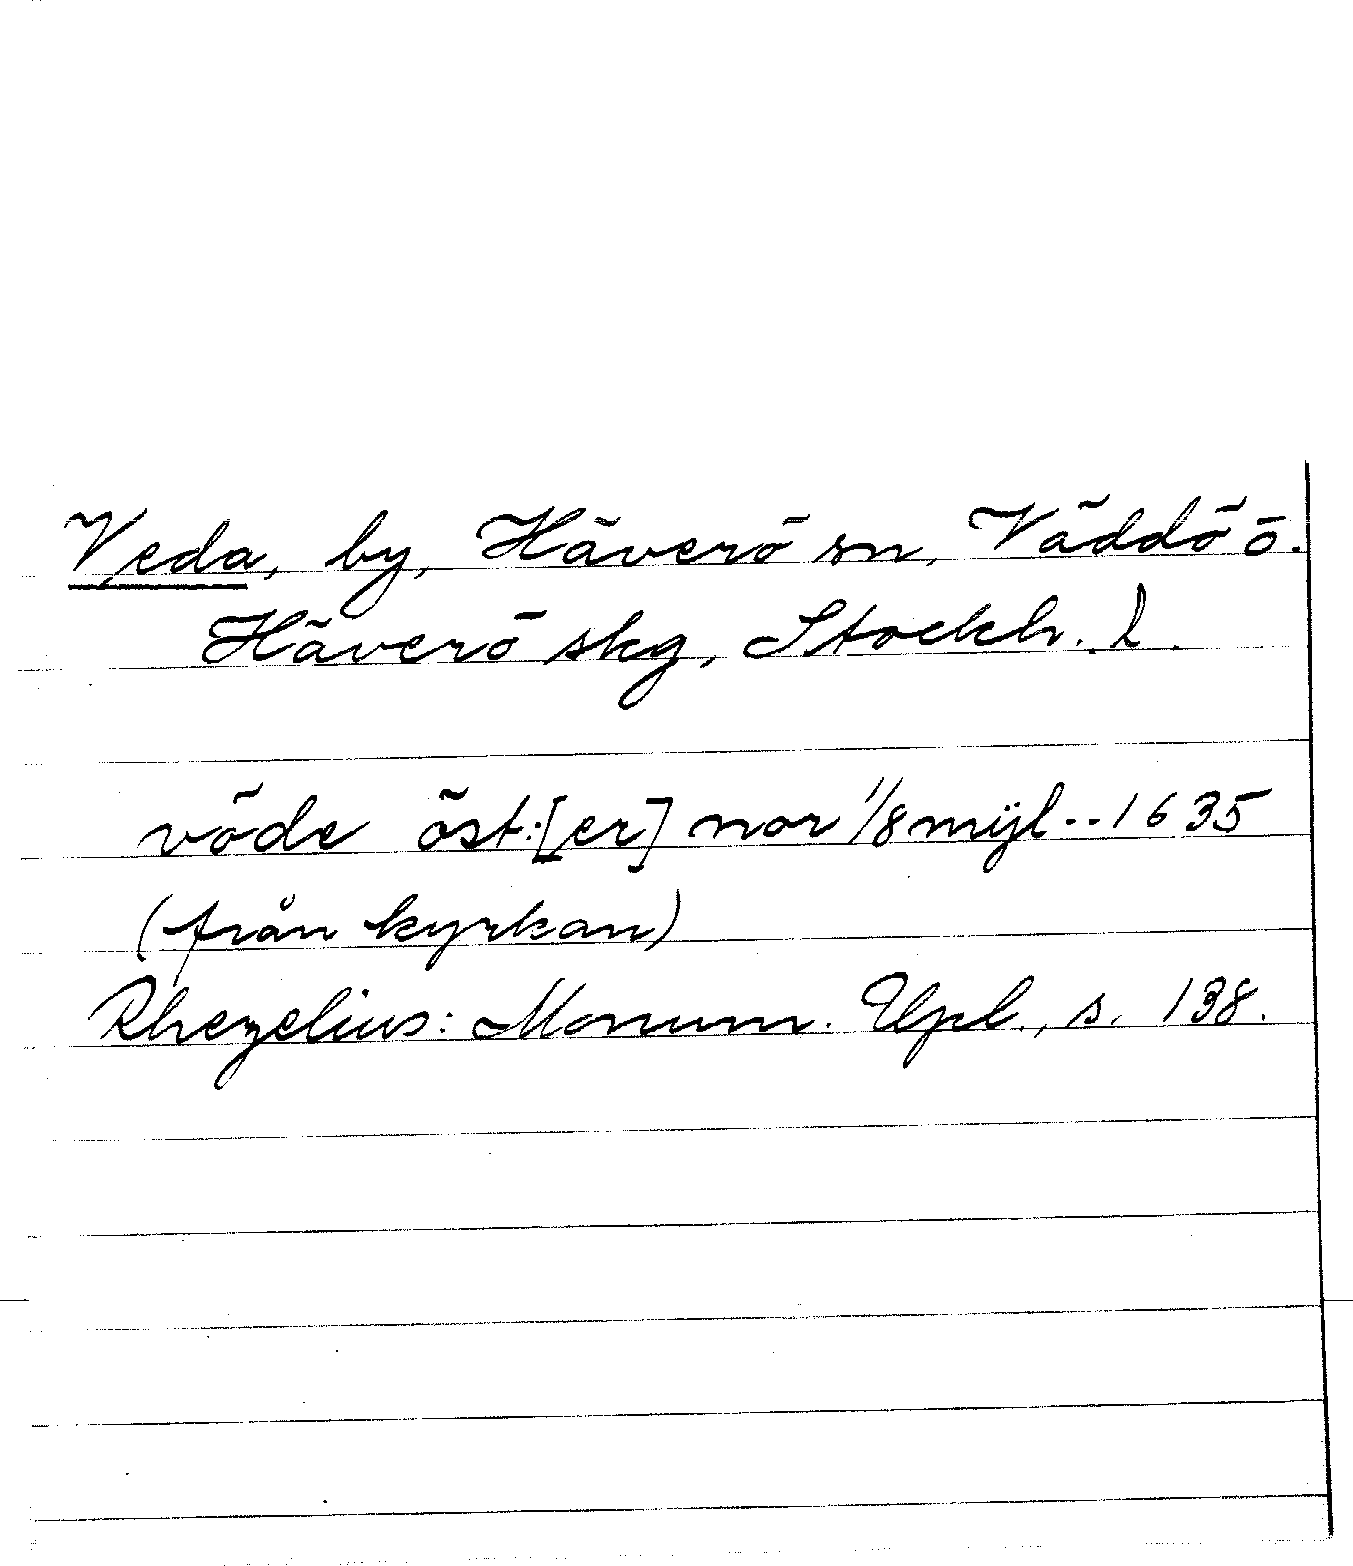 Veda, by, Häverö sn, Väddö ö.
Häverö skg, Stockh. l.
vöde öst:[er] nor 1/8 mÿl--1635
(från kyrkan)
Rhezelius: Monum. Upl., s. 138.